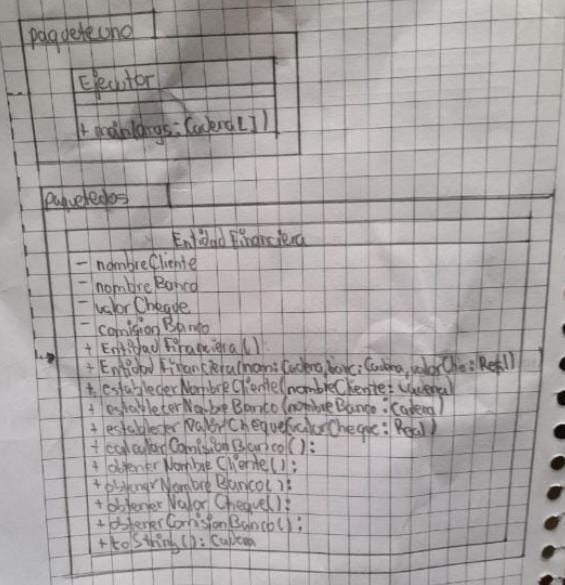 paqueteuno
Ejecutor
+ main(args: Cadena[])
paquetedos
Entidad Financiera
- nombreCliente
- nombreBanco
- valorCheque
- comisionBanco
+ EntidadFinanciera()
+ Entidad Financiera(nom: Cadena, banc: Cadena, valorChe: Real)
+ establecerNombreCliente(nombreCliente: Cadena)
+ establecerNombreBanco(nombreBanco: Cadena)
+ establecerValorCheque(valorCheque: Real)
+ calcularComisionBanco():
+ obtenerNombreCliente():
+ obtenerNombreBanco():
+ obtenerValorCheque():
+ obtenerComisionBanco():
+ toString(): Cadena